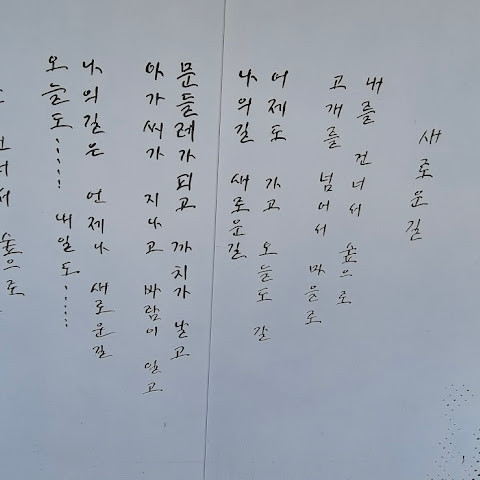 새로운 길
내를 건너서 숲으로
고개를 넘어서 마을로
어제도 가고 오늘도 갈
나의 길 새로운 길
문들레가 피고 까치가 날고
아가씨가 지나고 바람이 일고
나의 길은 언제나 새로운 길
오늘도…… 내일도……
건너서 숲으로